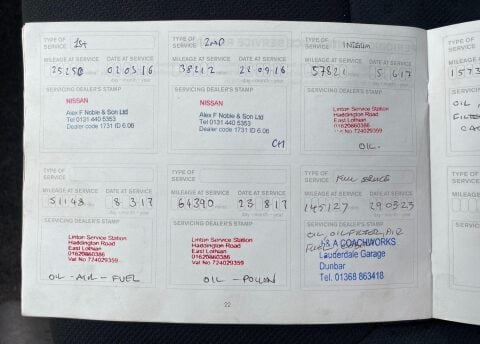 TYPE OF
SERVICE 1st
MILEAGE AT SERVICE DATE AT SERVICE
25250 02 03 16
SERVICING DEALER'S STAMP
NISSAN
Alex F Noble & Son Ltd
Tel 0131 440 5353
Dealer code 1731 ID 6.06
TYPE OF
SERVICE 2ND
MILEAGE AT SERVICE DATE AT SERVICE
38212 22 09 16
SERVICING DEALER'S STAMP
NISSAN
Alex F Noble & Son Ltd
Tel 0131 440 5353
Dealer code 1731 ID 6.06
TYPE OF
SERVICE INTERIM
MILEAGE AT SERVICE DATE AT SERVICE
57821 5 6 17
SERVICING DEALER'S STAMP
Linton Service Station
Haddington Road
East Lothian
01620860386
Vat No 724029359
OIL
TYPE OF
SERVICE
MILEAGE AT SERVICE DATE AT SERVICE
51143 8 3 17
day - month - year
SERVICING DEALER'S STAMP
Linton Service Station
Haddington Road
East Lothian
01620860386
Vat No 724029359
OIL - AIR - FUEL
TYPE OF
SERVICE
MILEAGE AT SERVICE DATE AT SERVICE
64390 28 8 17
day - month - year
SERVICING DEALER'S STAMP
Linton Service Station
Haddington Road
East Lothian
01620860386
Vat No 724029359
OIL - POLLEN
TYPE OF
SERVICE FULL SERVICE
MILEAGE AT SERVICE DATE AT SERVICE
145127 290323
day - month - year
SERVICING DEALER'S STAMP
OIL, OIL FILTER, AIR
FUEL
A COACHWORKS
Lauderdale Garage
Dunbar
Tel. 01368 863418
22
TYPE OF
SERVICE
MILEAGE
1573
SERVICING
OIL
TYPE OF
SERVICE
MILEAGE
SERVICING